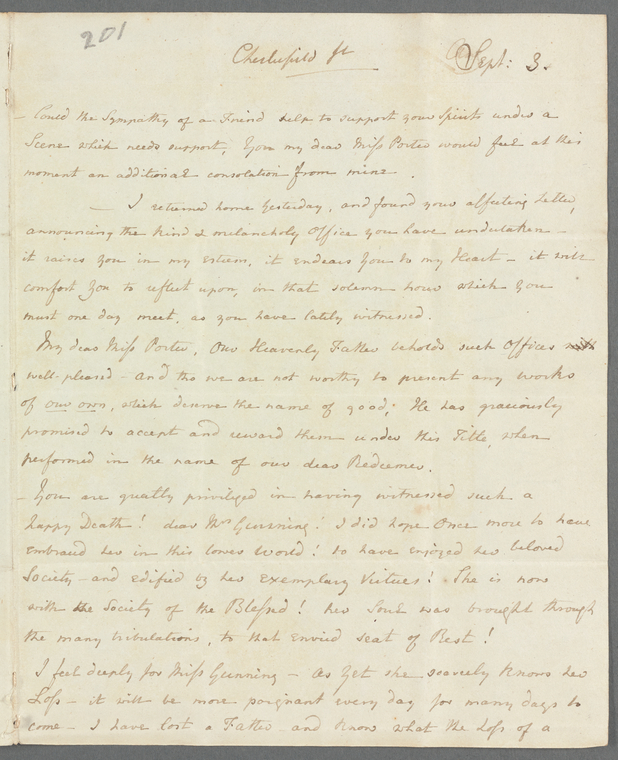 201
Chesterfield St
Sept: 3.
- Could the Sympathy of a Friend help to support your Spirits under a
Scene which needs support, You my dear Miss Porter would feel at this
moment an additional consolation from mine.
- I returned home Yesterday, and found your affecting Letter,
announcing the kind & melancholy Office you have undertaken -
it raises You in my Esteem, it endears You to my Heart - it will
comfort You to reflect upon, in that solemn hour which You
must one day meet, as you have lately witnessed.
My dear Miss Porter, Our Heavenly Father beholds such Offices
well-pleased - and tho we are not worthy to present any works
of our own, which deserve the name of good; He has graciously
promised to accept and reward them under this Title, when
performed in the name of our dear Redeemer.
- You are greatly privileged in having witnessed such a
happy Death! dear Mrs Gunning! I did hope Once more to have
Embraced her in this lower World! to have enjoyed her beloved
Society - and edified by her Exemplary Virtues! She is now
with the Society of the Blessed! her Soul was brought through
the many tribulations, to that Envied Seat of Rest!
I feel deeply for Miss Gunning - As Yet she scarcely knows her
Loss - it will be more poignant every day for many days to
come - I have lost a Father - and know what the Loss of a